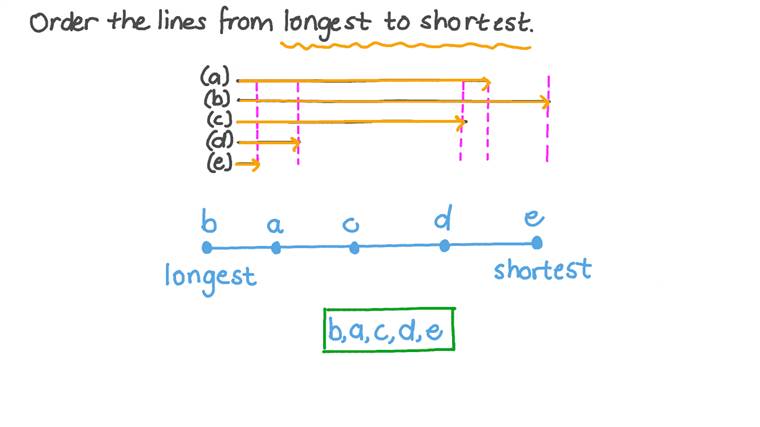 Order the lines from longest to shortest.
(a)
(b)
(c)
(d)
(e)
b a c d e
longest shortest
b, a, c, d, e